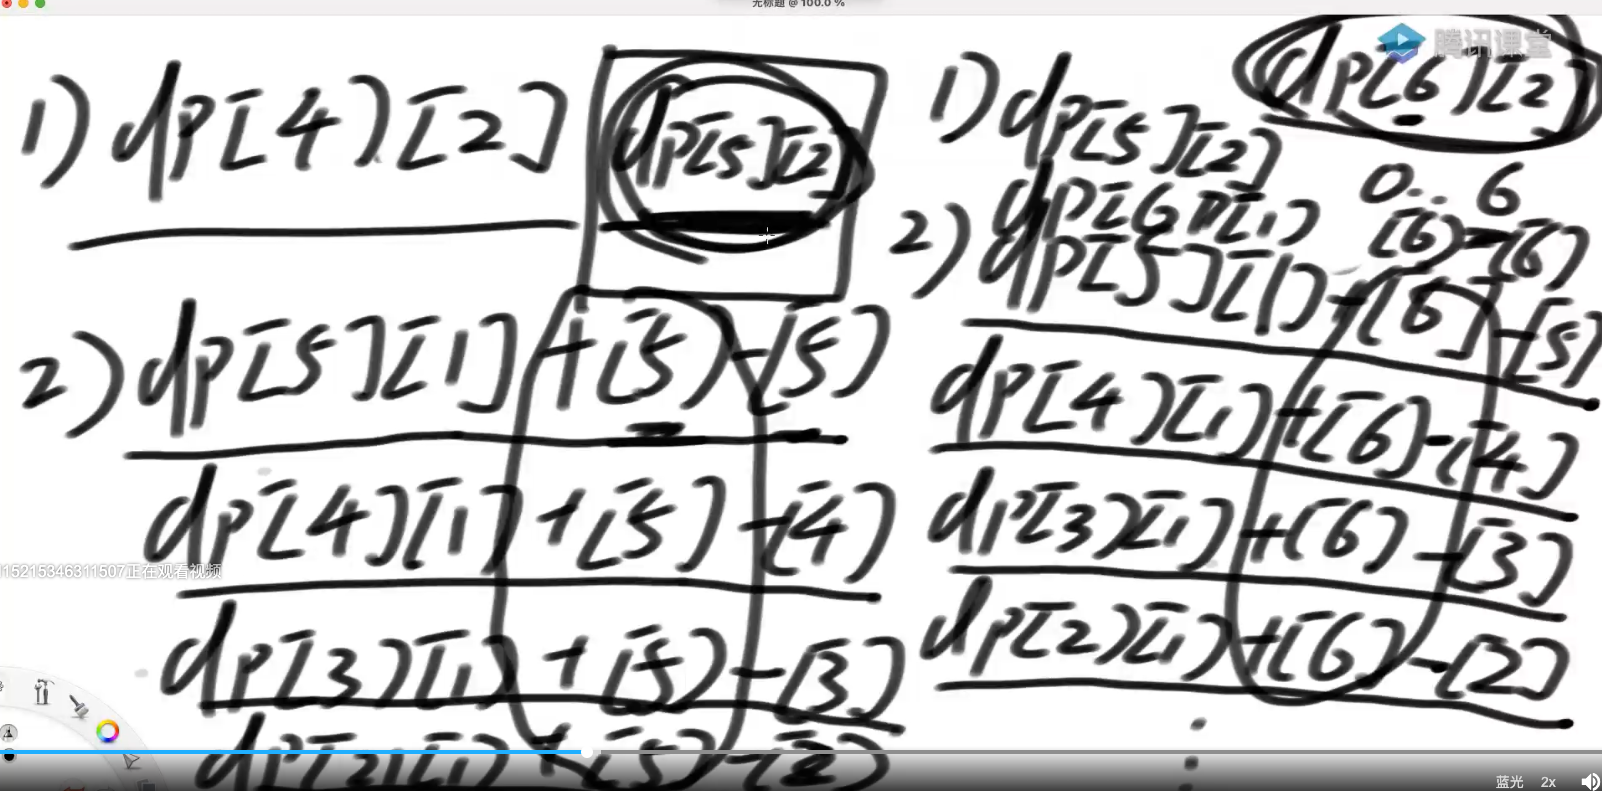 无标题 @ 100.0 %
腾讯课堂
1) dp[4][2]
dp[5][2]
2) dp[5][1] + [5] - [5]
dp[4][1] + [5] - [4]
dp[3][1] + [5] - [3]
dp[2][1] + [5] - [2]
dp[6][2]
1) dp[5][2]
0..6
2) dp[6][1] [6] - [6]
dp[5][1] + [6] - [5]
dp[4][1] + [6] - [4]
dp[3][1] + [6] - [3]
dp[2][1] + [6] - [2]
115215346311507正在观看视频
蓝光 2x